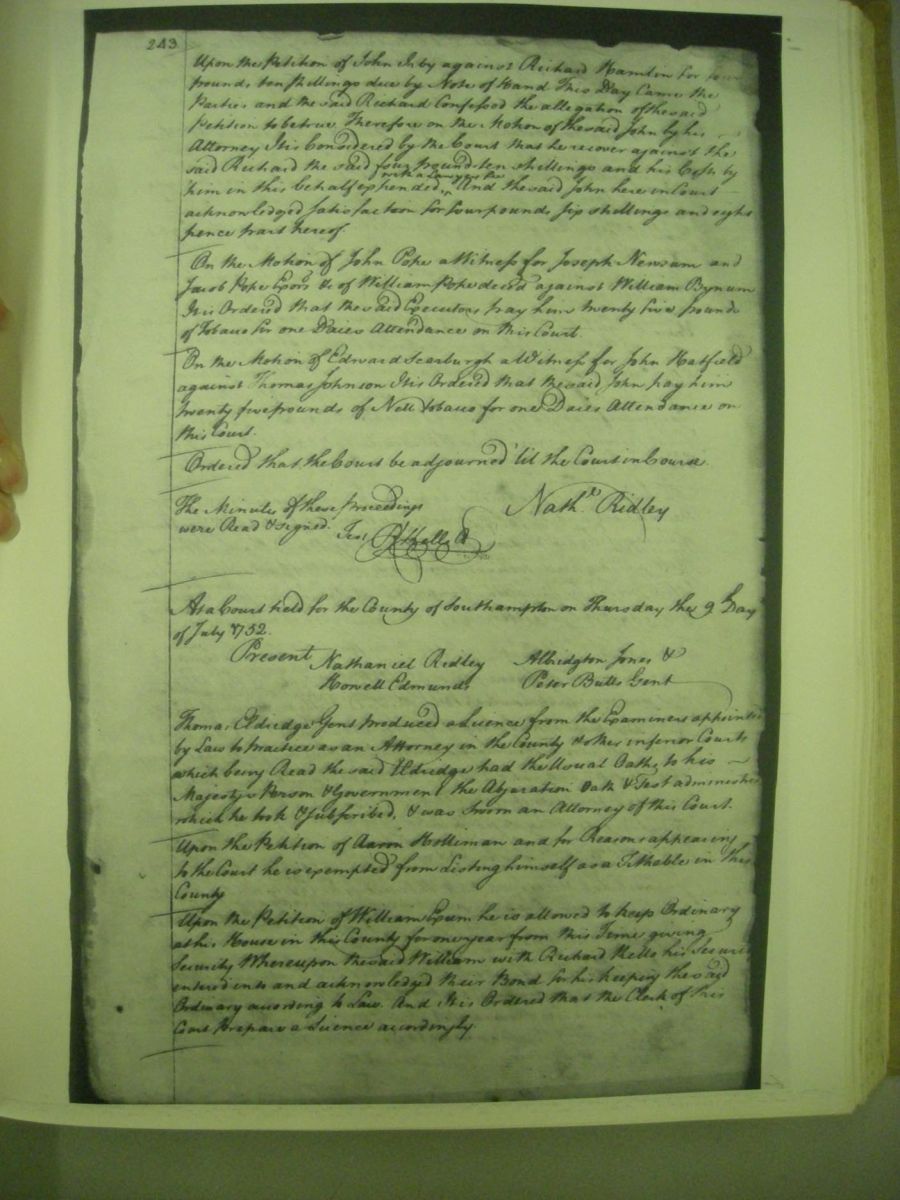 243
Upon the Petition of John Irby against Richard Hamlin for four
pounds ten shillings due by Note of Hand This Day Came the
Parties and the said Richard Confessed the allegation of the said
Petition to be true Therefore on the Motion of the said John by his
Attorney It is Considered by the Court that he recover against the
said Richard the said four pounds ten shillings and his Costs by
with a Lawyers fee
him in this behalf expended, And the said John here in Court
acknowledged satisfaction for four pounds six shillings and eight
pence part hereof
On the Motion of John Pope a Witness for Joseph Newsum and
Jacob Pope Exors &c of William Pope deced against William Bynum
It is Ordered that the said Executors pay him twenty five pounds
of Tobacco for one Daies Attendance on this Court.
On the Motion of Edward Scarburgh a Witness for John Hatfield
against Thomas Johnson It is Ordered that the said John pay him
twenty five pounds of Nett Tobacco for one Daies Attendance on
this Court.
Ordered that the Court be adjourned 'til the Court in Course.
The Minutes of these Proceedings
were Read & signed.
Nath.ll Ridley
Test R Kello Cl
At a Court held for the County of Southampton on Thursday the 9 Day
of July 1752.
Present Nathaniel Ridley Albridgton Jones &
Howell Edmunds Peter Butts Gent
Thomas Eldridge Gent produced a Licence from the Examiners appointed
by Law to Practice as an Attorney in the County & other inferior Courts
which being Read the said Eldridge had the Usual Oaths to his
Majestys Person & Government the Abjuration Oath & Test administred
which he took & subscribed, & was sworn an Attorney of this Court.
Upon the Petition of Aaron Holliman and for Reasons appearing
to the Court he is exempted from Listing himself as a Tithable in this
County
Upon the Petition of William Exum he is allowed to keep Ordinary
at his House in this County for one year from this Time giving
Security Whereupon the said William with Richard Kello his Security
entered into and acknowledged their Bond for his keeping the said
Ordinary according to Law. And It is Ordered that the Clerk of this
Court Prepare a Licence accordingly.